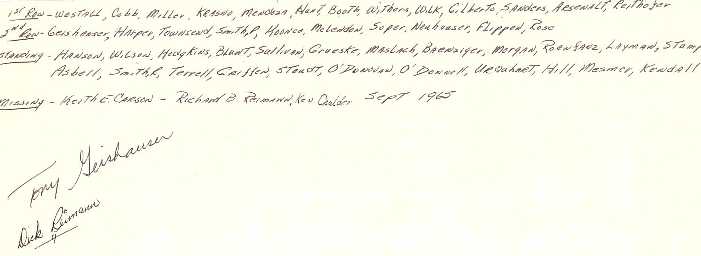 1st Row - Westall, Cobb, Miller, Krasno, Mendoza, Hunt, Booth, Withers, Wilk, Gilberto, Sanders, Arsenalt, Reithofer
2nd Row - Geishauser, Harper, Townsend, Smith, P, Hoance, McLendon, Soper, Neuhauser, Flippen, Rose
Standing - Hansen, Wilson, Hodgkins, Blunt, Sullivan, Grueske, Maslach, Baenziger, Morgan, Layman, Stamp
Asbell, Smith, R, Terrell, Griffen, Stendt, O'Donovan, O'Donnell, Urquhart, Hill, Mesmer, Kendall
Missing - Keith E. Carson - Richard B. Reimann, Ken Chalder Sept 1965
Tony Geishauser
Dick Reimann